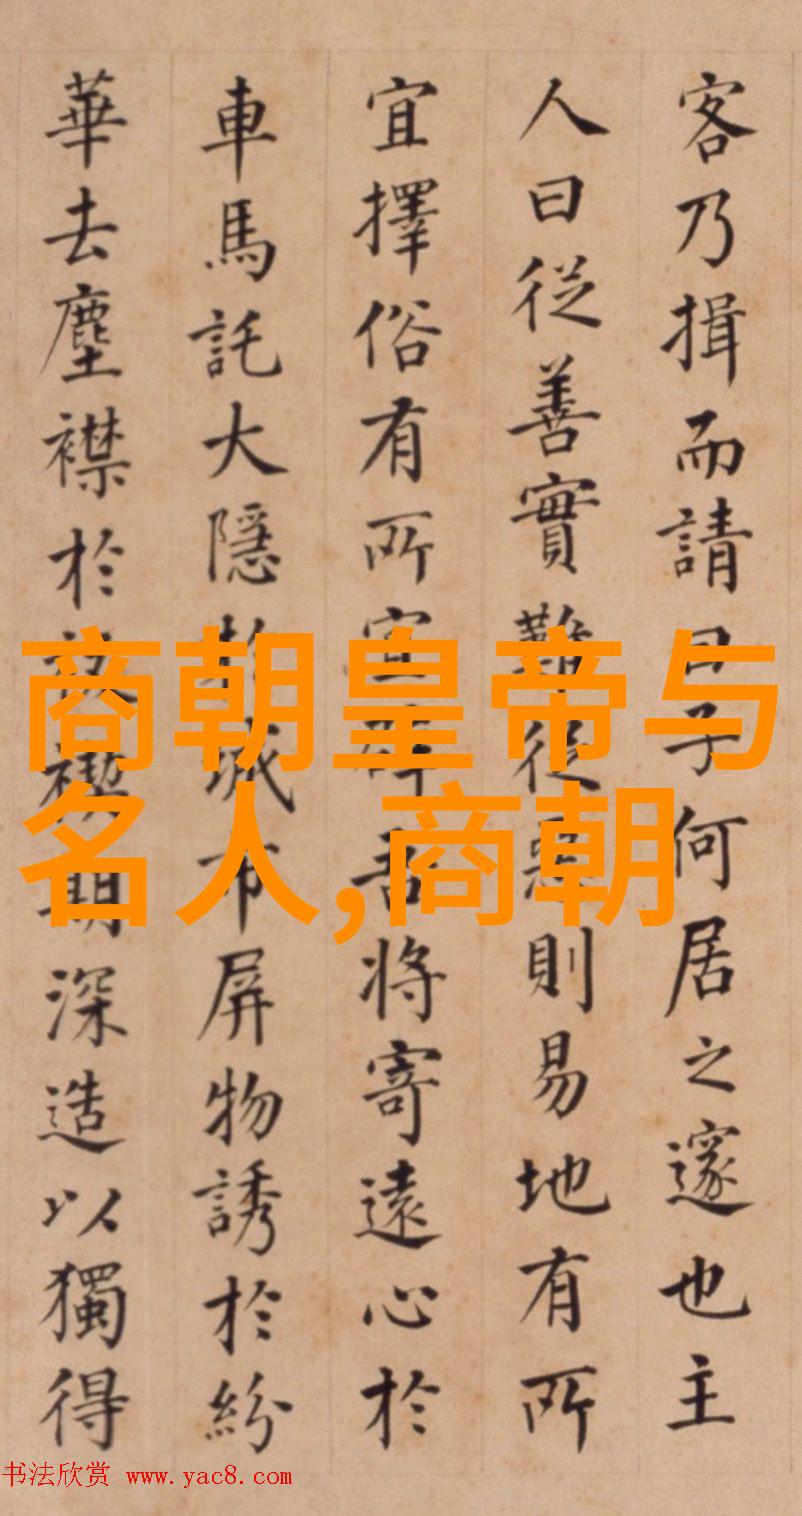 客乃揖而請曰子何居之邃也主
人曰從善實難從惡則易地有所
宜擇俗有所宜吾將寄遠心於
車馬託大隱於城市屏物誘於紛
華去塵襟於祓禊期深造以獨得
商朝皇帝与
名人,商朝
书法欣赏 www.yac8.com